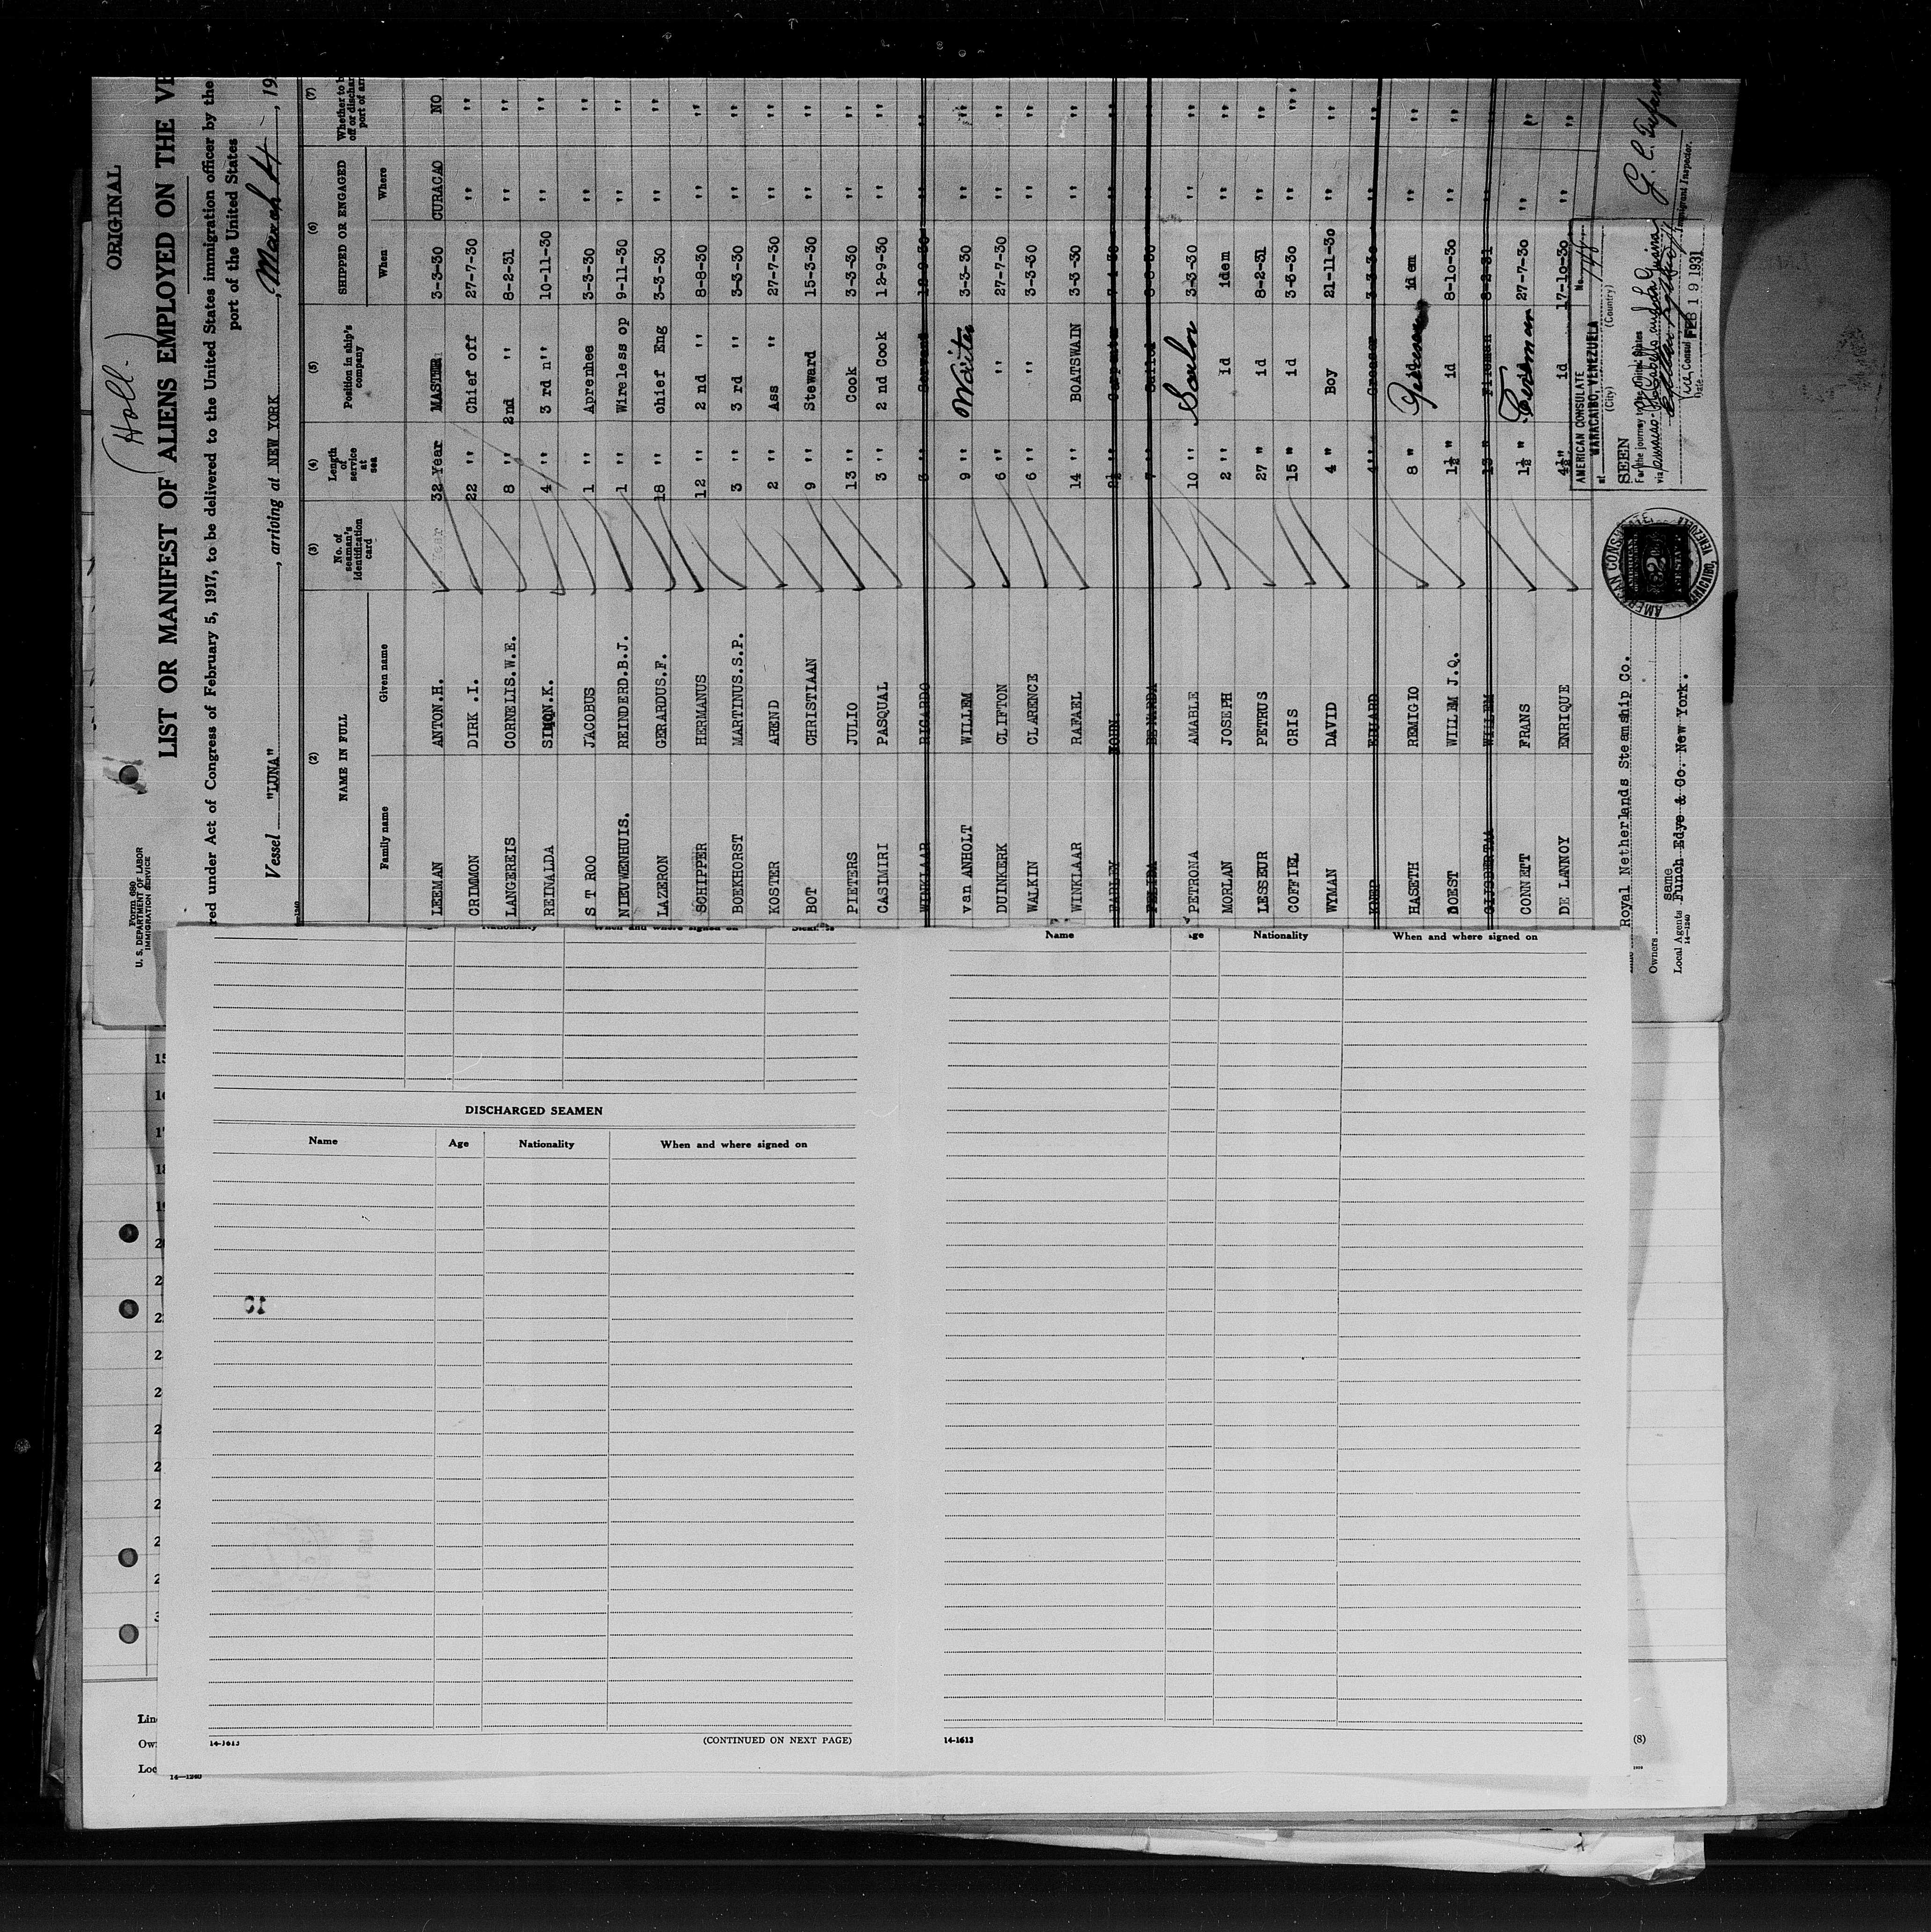 ORIGINAL
(Holl.)
Form 680
U. S. DEPARTMENT OF LABOR
IMMIGRATION SERVICE
LIST OR MANIFEST OF ALIENS EMPLOYED ON THE VE
red under Act of Congress of February 5, 1917, to be delivered to the United States immigration officer by the
port of the United States
Vessel "LUNA", arriving at NEW YORK, March 4, 19
(2) (3) (4) (5) (6) (7)
NAME IN FULL No. of seaman's identification card Length of service at sea Position in ship's company SHIPPED OR ENGAGED Whether to b off or dischar port of arr
Family name Given name When Where
LEEMAN ANTON.H. 32 Year MASTER 3-3-30 CURACAO NO
CRIMMON DIRK .I. 22 '' Chief off 27-7-30 '' ''
LANGEREIS CORNELIS.W.E. 8 '' 2nd '' 8-2-31 '' ''
REINALDA SIMON.K. 4 '' 3 rd n'' 10-11-30 '' ''
S T ROO JACOBUS 1 '' Aprenhee 3-3-30 '' ''
NIEUWENHUIS. REINDERD.B.J. 1 '' Wireless op 9-11-30 '' ''
LAZERON GERARDUS.F. 18 '' chief Eng 3-3-30 '' ''
SCHIPPER HERMANUS 12 '' 2 nd '' 8-8-30 '' ''
BOEKHORST MARTINUS.S.P. 3 '' 3 rd '' 3-3-30 '' ''
KOSTER AREND 2 '' Ass '' 27-7-30 '' ''
BOT CHRISTIAAN 9 '' Steward 15-3-30 '' ''
PIETERS JULIO 13 '' Cook 3-3-30 '' ''
CASIMIRI PASQUAL 3 '' 2 nd Cook 12-9-30 '' ''
WINKLAAR RIGARDO 3 '' Servant 12-9-30 '' ''
van ANHOLT WILLEM 9 '' Waiter 3-3-30 '' ''
DUINKERK CLIFTON 6 '' '' 27-7-30 '' ''
WALKIN CLARENCE 6 '' '' 3-3-30 '' ''
WINKLAAR RAFAEL 14 '' BOATSWAIN 3-3-30 '' ''
JOHN. 2½ '' Carpenter 7-4-30 '' ''
FELIDA 7 '' Sailor 8-8-30 '' ''
PETRONA AMABLE 10 '' Sailor 3-3-30 '' ''
MORLAN JOSEPH 2 '' id idem '' ''
LESSEUR PETRUS 27 " id 8-2-31 '' ''
COFFIEL CRIS 15 " id 3-3-30 '' ''
WYMAN DAVID 4 " Boy 21-11-30 '' ''
KNEP EDUARD 4 '' Greaser 3-3-30 '' ''
HASETH REMIGIO 8 " idem '' ''
DOEST WILEM J.Q. 1½ " id 8-10-30 '' ''
GIJSBERTAA WILEM 13 " Fireman 8-2-31 '' ''
CONNETT FRANS 1½ " Fireman 27-7-30 '' ''
DE LANNOY ENRIQUE 4½ " id 17-10-30 '' ''
Royal Netherlands Steamship Co.
Owners same
Local Agents Funch Edye & Co. New York.
14—1240
AMERICAN CONSULATE
at MARACAIBO, VENEZUELA
No. 148
(City) (Country)
SEEN
For the journey to the United States
via Curacao, Pto Cabello and La Guaira
Consul
Date FEB 19 1931
Immigrant Inspector.
AMERICAN CONSULATE
MARACAIBO, VENEZUELA
Nationality When and where signed on
DISCHARGED SEAMEN
Name Age Nationality When and where signed on
14-1613
(CONTINUED ON NEXT PAGE)
Name Age Nationality When and where signed on
14-1613
15
18
Lin
Ow
Loc
14—1240
(8)